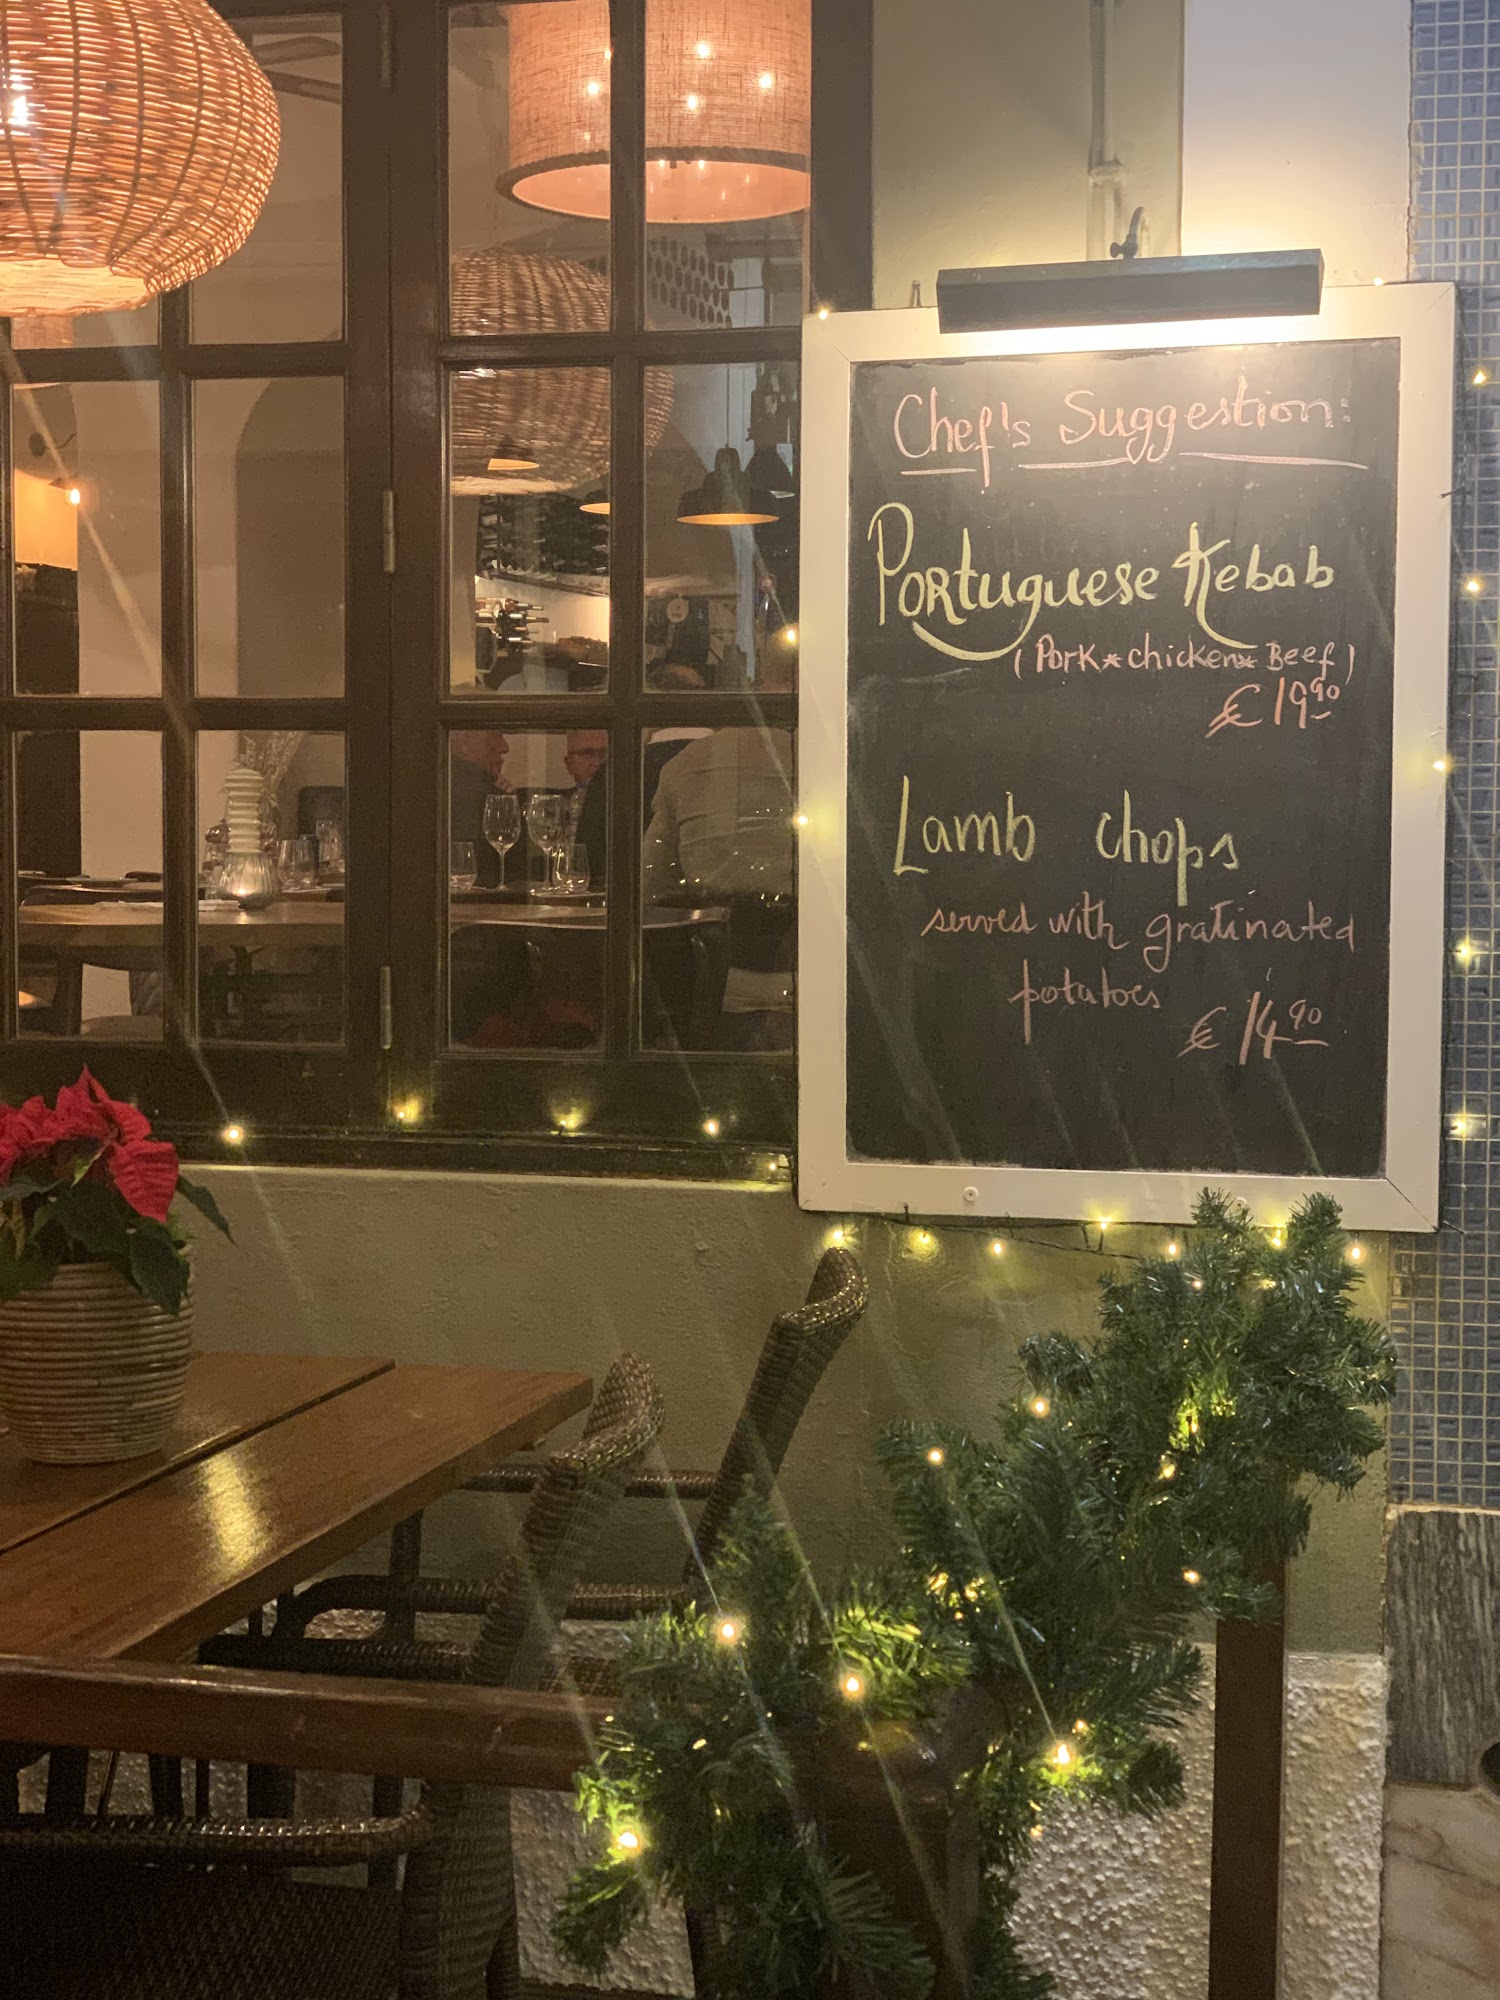 Chef's Suggestion:
Portuguese Kebab
(Pork*chicken*Beef)
€19.90
Lamb chops
served with gratinated
potatoes
€ 14.90